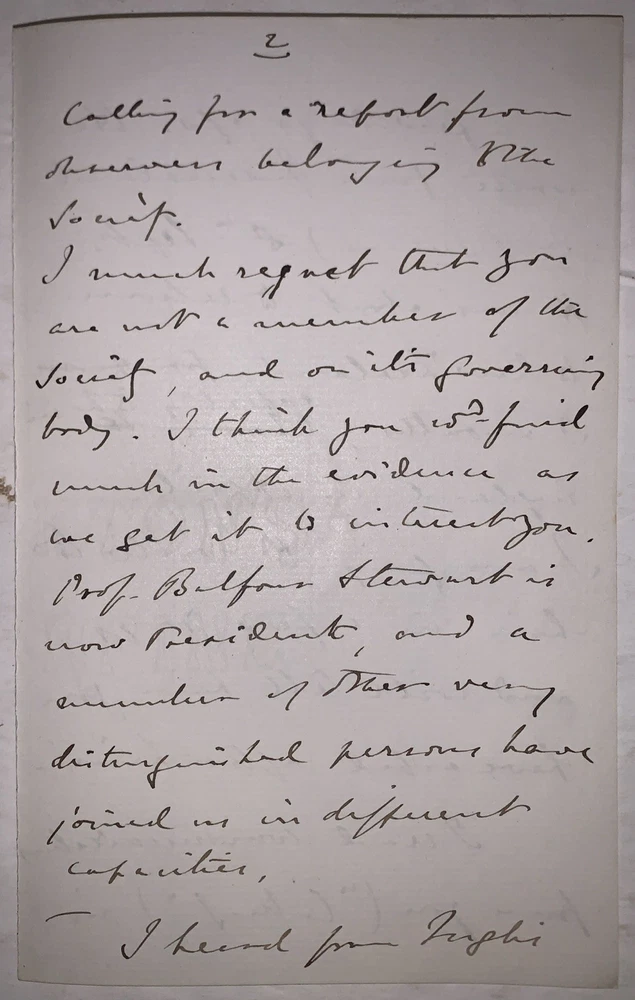 2
Calling for a report from
observers belonging to the
Society.
I much regret that you
are not a member of the
Society, and on it's governing
body. I think you wd find
much in the evidence as
we get it to interest you.
Prof. Balfour Stewart is
now President, and a
number of other very
distinguished persons have
joined us in different
capacities,
I heard from